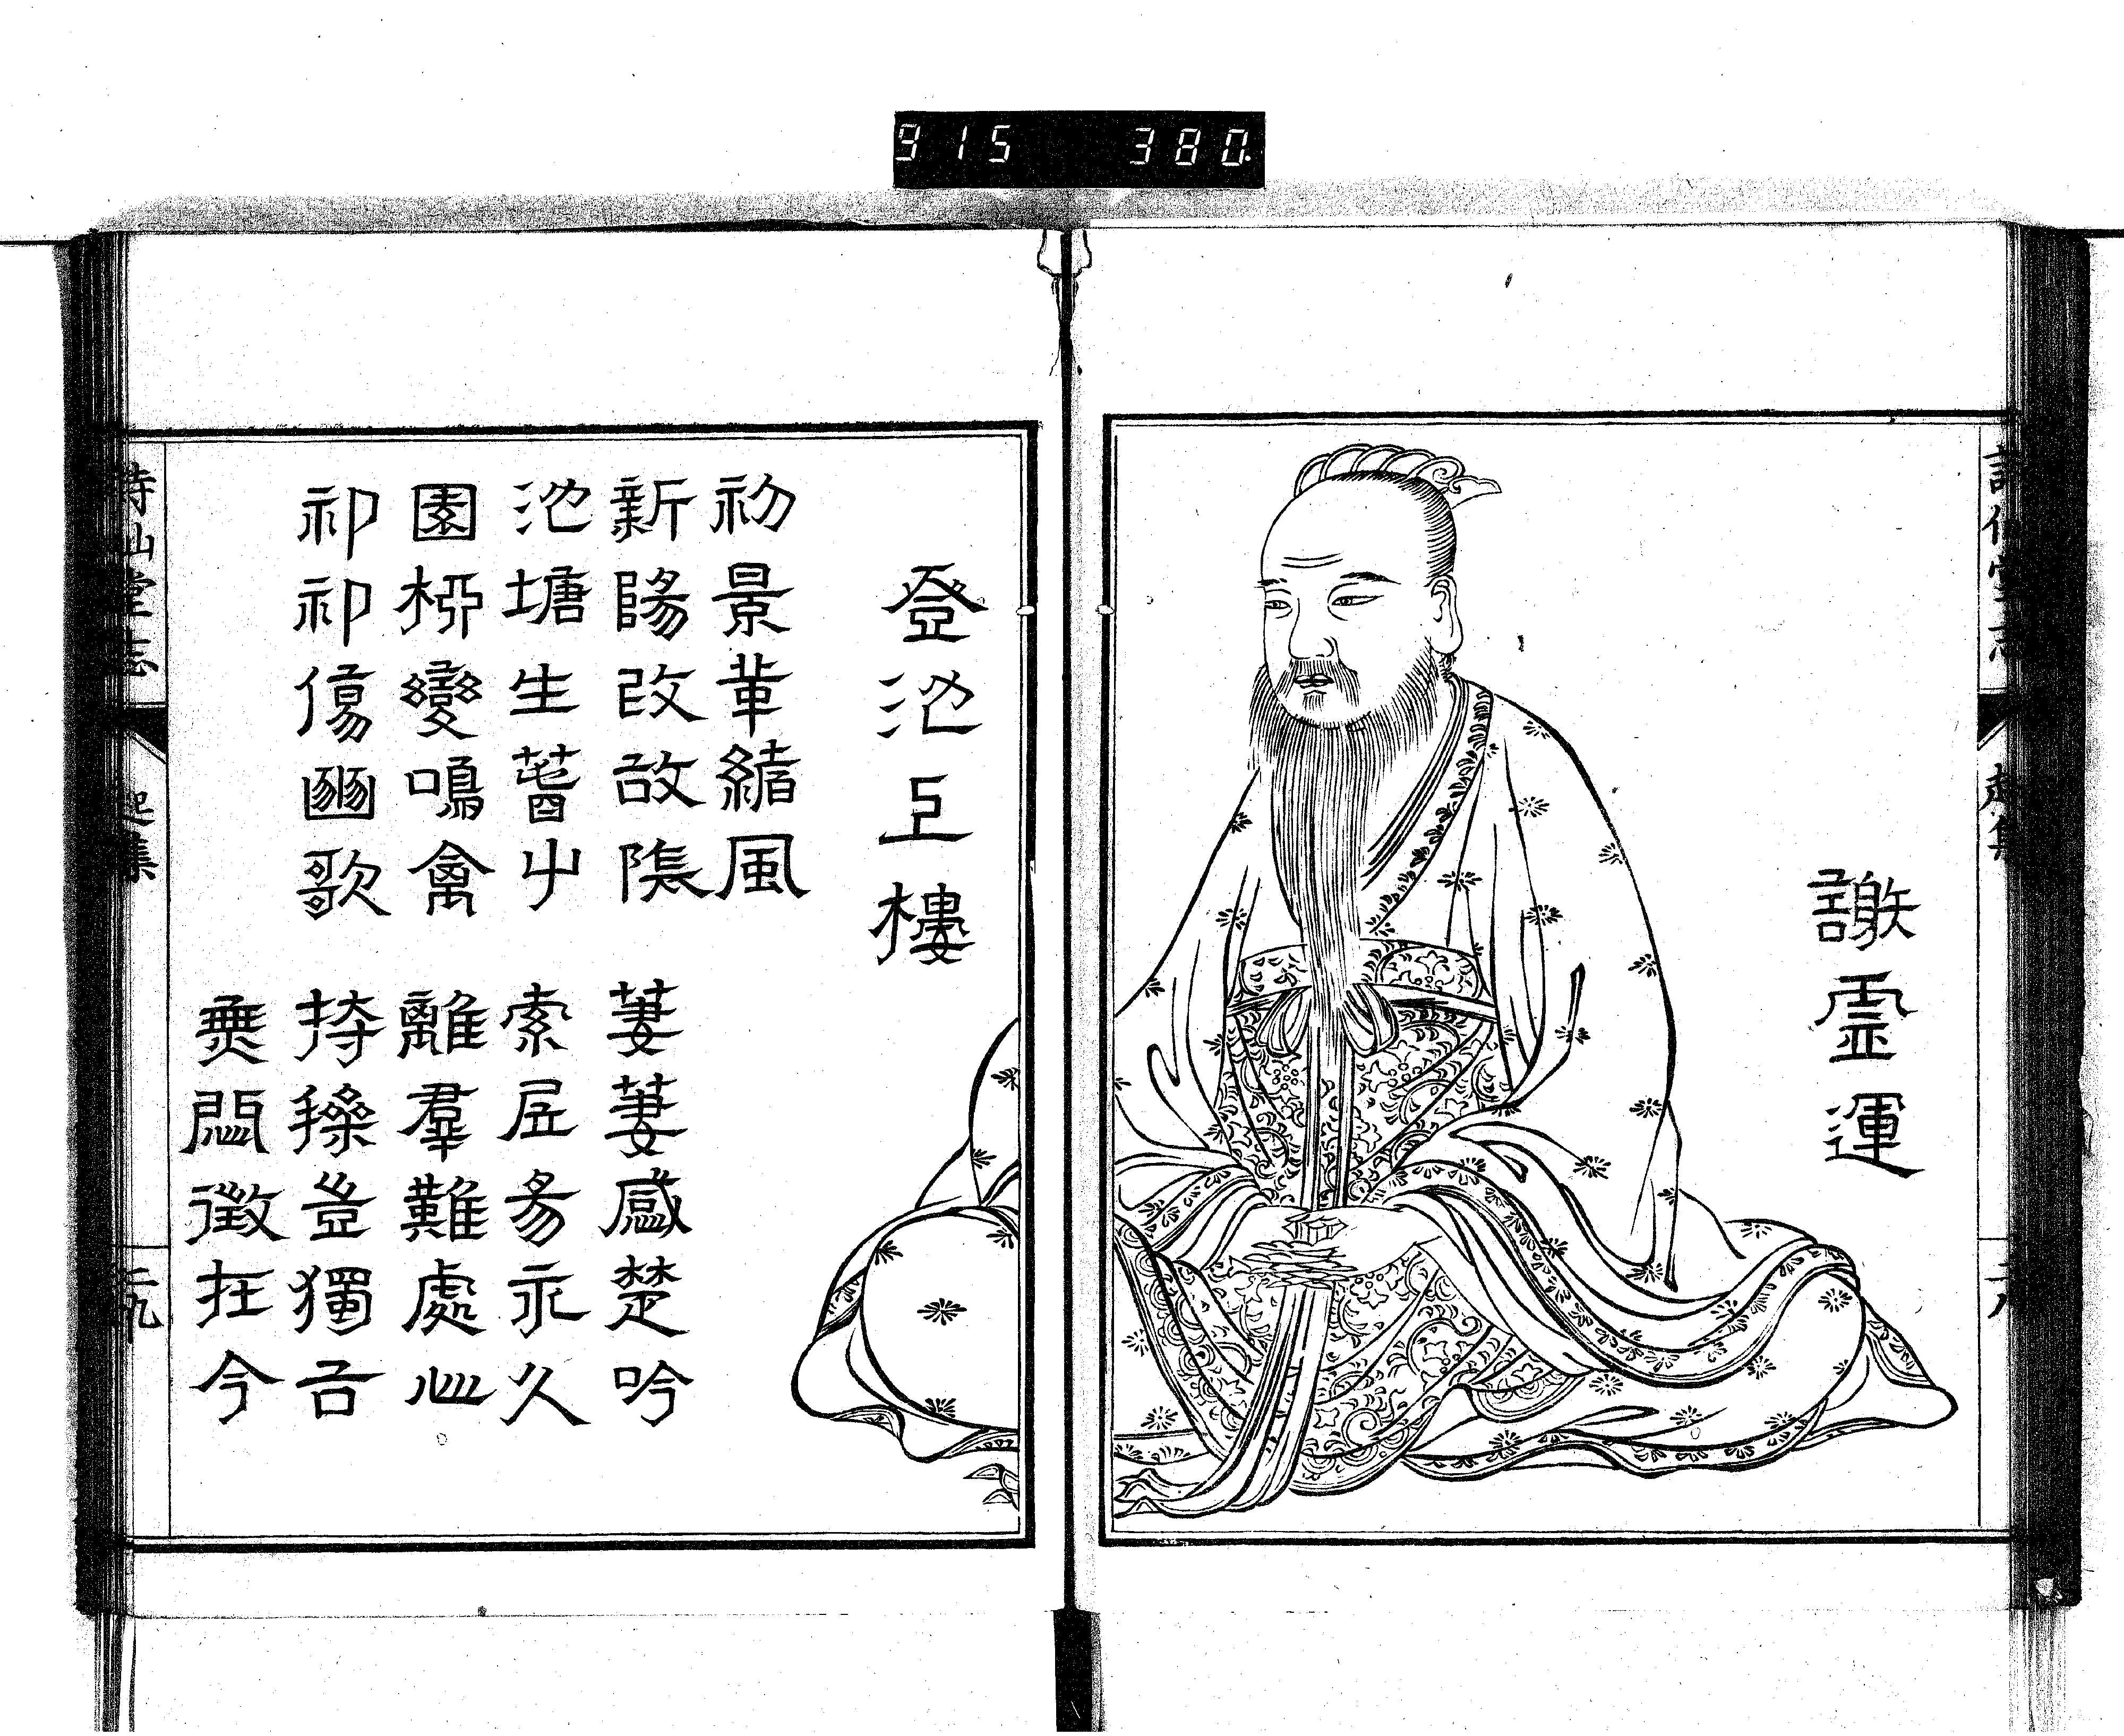 915 380.
詩仙堂志 起集 二八
謝霊運
登池上樓
初景革緒風
新陽改故陰
池塘生春艸
園柳變鳴禽
祁祁傷豳歌
萋萋感楚吟
索居易永久
離羣難處心
持操豈獨古
無悶徵在今
詩仙堂志 起集 二九